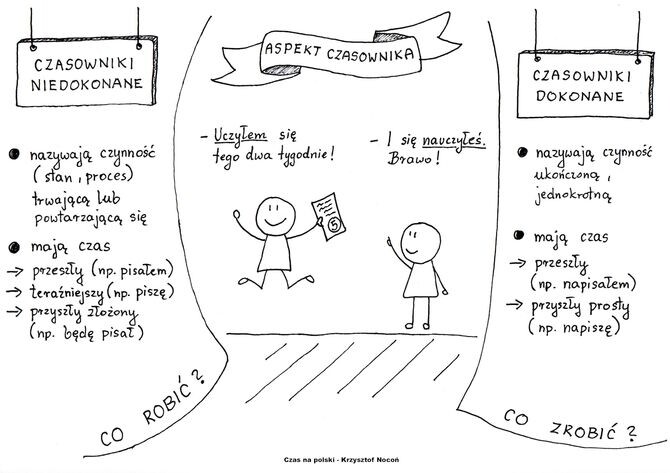 CZASOWNIKI
NIEDOKONANE
nazywają czynność
(stan, proces)
trwającą lub
powtarzającą się
mają czas
→ przeszły (np. pisałem)
→ teraźniejszy (np. piszę)
→ przyszły złożony
(np. będę pisał)
CO ROBIĆ?
ASPEKT CZASOWNIKA
- Uczyłem się
tego dwa tygodnie!
- I się nauczyłeś.
Brawo!
5
CZASOWNIKI
DOKONANE
nazywają czynność
ukończoną,
jednokrotną
mają czas
→ przeszły
(np. napisałem)
→ przyszły prosty
(np. napiszę)
CO ZROBIĆ?
Czas na polski - Krzysztof Nocoń